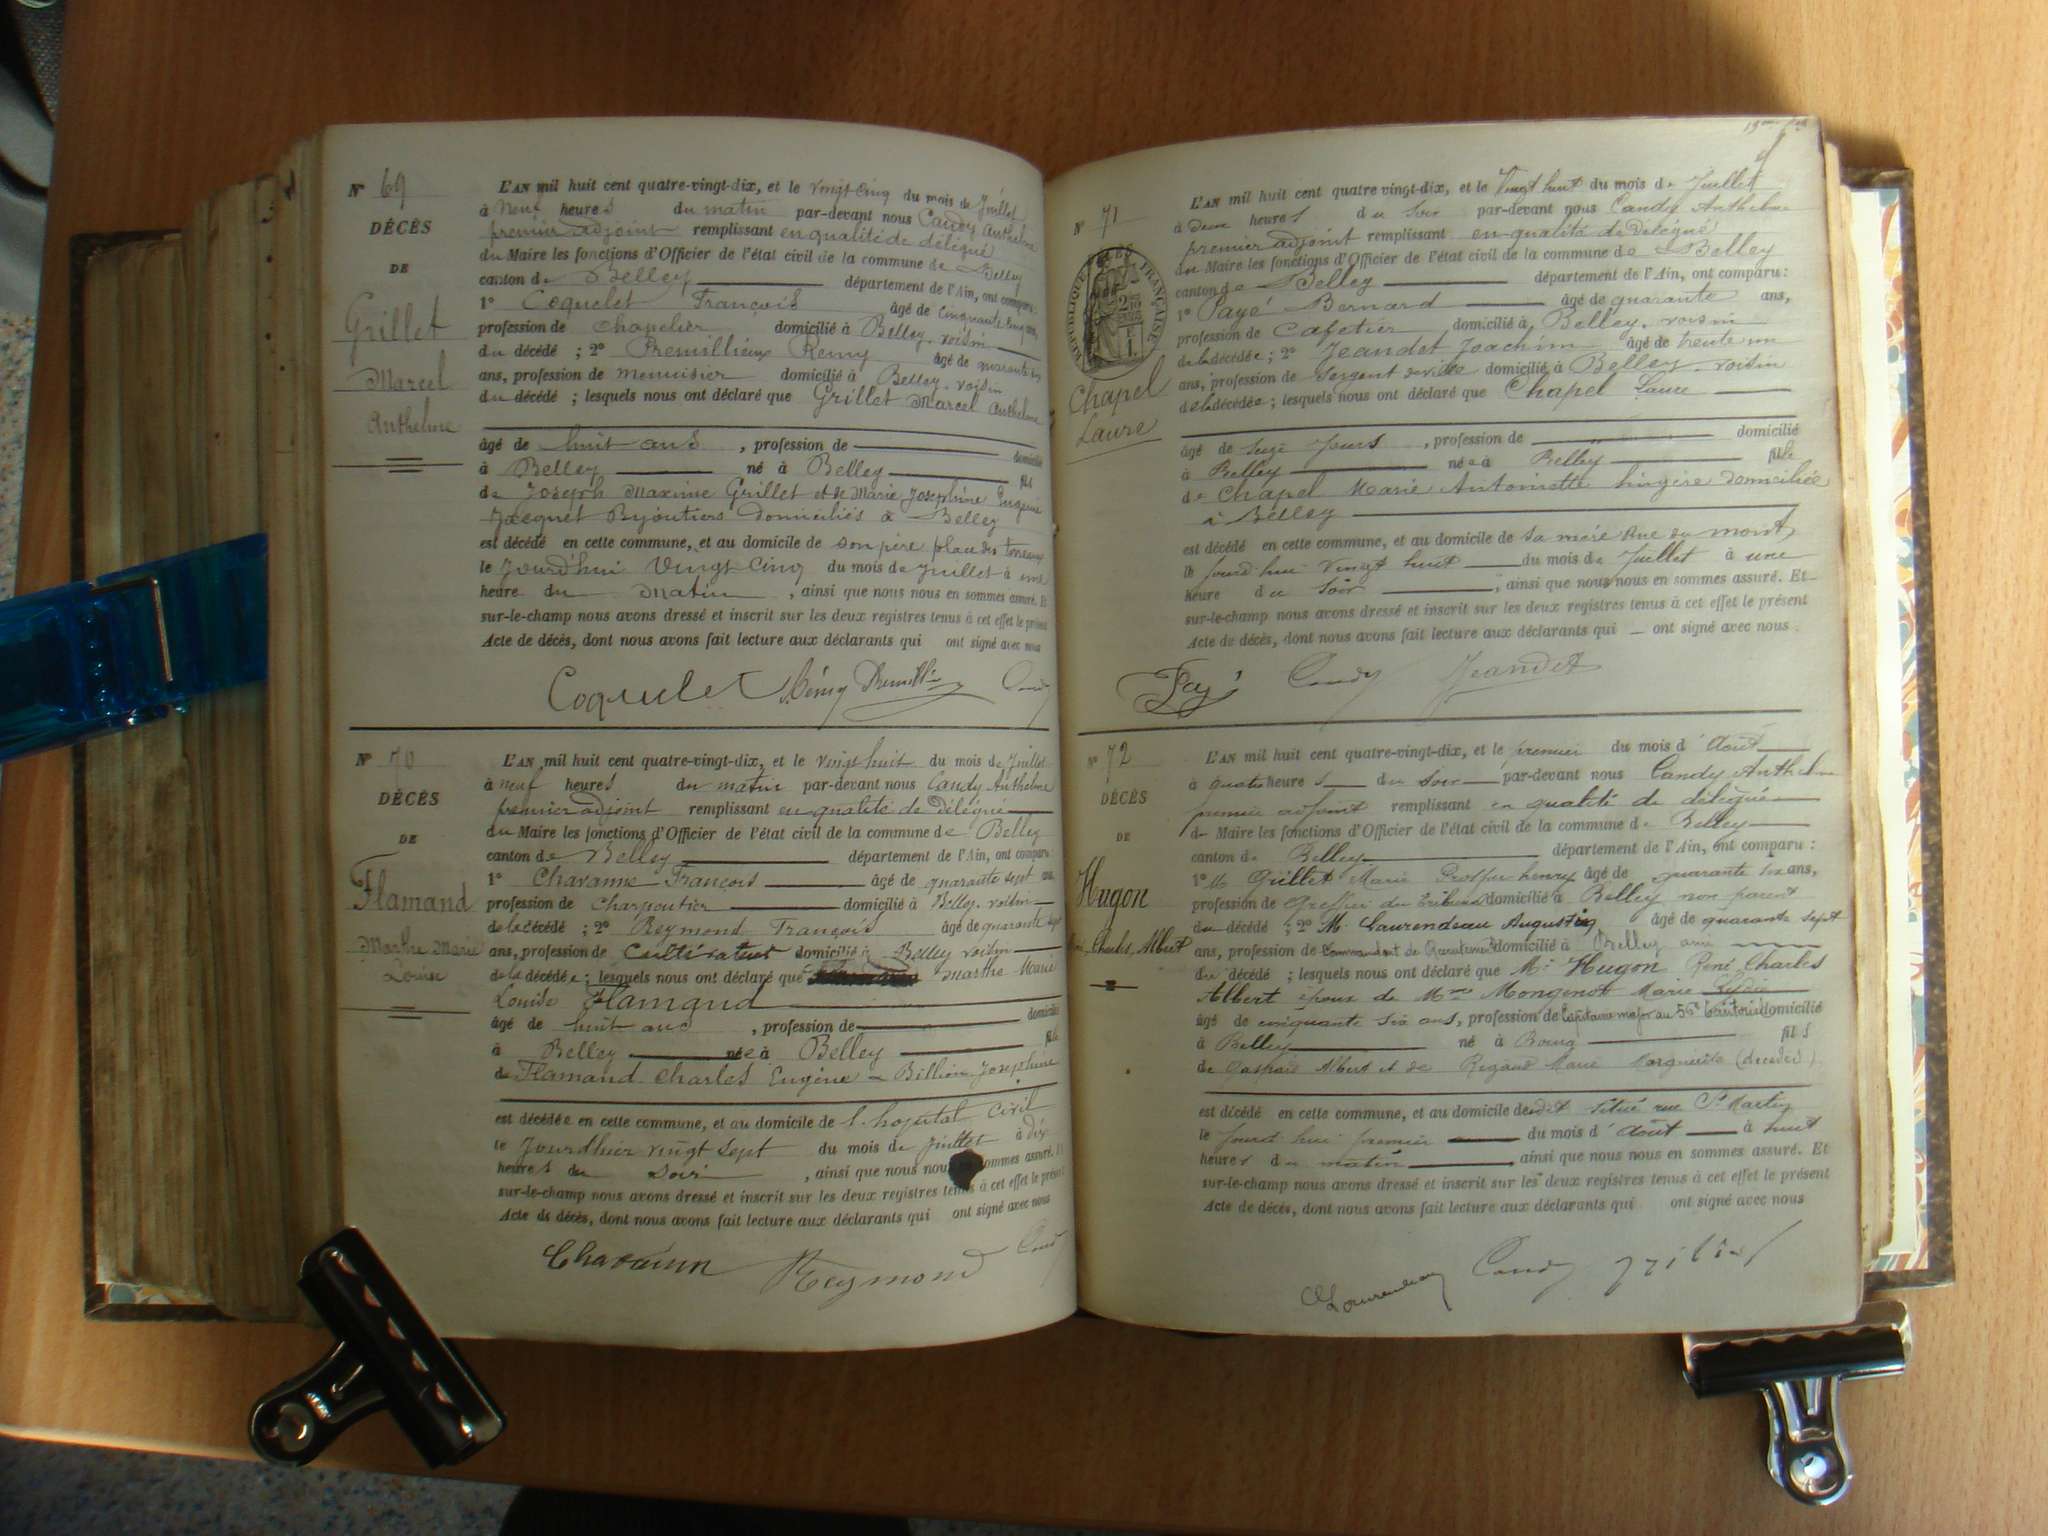 Nº 69
DÉCÈS
DE
Grillet
Marcel
Anthelme
L'AN mil huit cent quatre-vingt-dix, et le vingt cinq du mois de Juillet
à Neuf heures du matin par-devant nous Candy Anthelme
premier adjoint remplissant en qualité de délégué
du Maire les fonctions d'Officier de l'état civil de la commune de Belley
canton de Belley département de l'Ain, ont comparu:
1º Coquelet François âgé de cinquante cinq ans,
profession de chapelier domicilié à Belley, voisin
du décédé ; 2º Premillieux Remy âgé de quarante
ans, profession de menuisier domicilié à Belley, voisin
du décédé ; lesquels nous ont déclaré que Grillet Marcel Anthelme
âgé de huit ans , profession de domicilié
à Belley né à Belley fils
de Joseph Maxime Grillet et de Marie Josephine Eugénie
Jacquet Bijoutiers domiciliés à Belley
est décédé en cette commune, et au domicile de son père place des Terreaux
le Jourd'hui Vingt Cinq du mois de Juillet à une
heure du Matin , ainsi que nous nous en sommes assuré. Et
sur-le-champ nous avons dressé et inscrit sur les deux registres tenus à cet effet le présent
Acte de décès, dont nous avons fait lecture aux déclarants qui ont signé avec nous
Coquelet Rémy Candy
Nº 70
DÉCÈS
DE
Flamand
Marthe Marie
Louise
L'AN mil huit cent quatre-vingt-dix, et le vingt huit du mois de Juillet
à neuf heures du matin par-devant nous Candy Anthelme
premier adjoint remplissant en qualité de Délégué
du Maire les fonctions d'Officier de l'état civil de la commune de Belley
canton de Belley département de l'Ain, ont comparu:
1º Chavanne François âgé de quarante sept ans,
profession de charpentier domicilié à Belley, voisin
de la décédé ; 2º Reymond François âgé de quarante sept
ans, profession de Cultivateur domicilié à Belley voisin
de la décédée ; lesquels nous ont déclaré que Marthe Marie
Louise Flamand
âgé de huit ans , profession de domicilié
à Belley née à Belley fille
de Flamand Charles Eugène & Billion Josephine
est décédée en cette commune, et au domicile de l'hopital civil
le Jourdhier vingt sept du mois de Juillet à dix
heures du soir , ainsi que nous nous sommes assuré. Et
sur-le-champ nous avons dressé et inscrit sur les deux registres tenus à cet effet le présent
Acte de décès, dont nous avons fait lecture aux déclarants qui ont signé avec nous
Chavanne Reymond Candy
Nº 71
RÉPUBLIQUE FRANÇAISE
Chapel
Laure
L'AN mil huit cent quatre-vingt-dix, et le Vingt huit du mois de Juillet
à Deux heures du Soir par-devant nous Candy Anthelme
premier adjoint remplissant en qualité de Délégué
du Maire les fonctions d'Officier de l'état civil de la commune de Belley
canton de Belley département de l'Ain, ont comparu:
1º Payé Bernard âgé de quarante ans,
profession de Cafetier domicilié à Belley, voisin
de la décédée ; 2º Jeandet Joachim âgé de trente un
ans, profession de Sergent de ville domicilié à Belley, voisin
de la décédée ; lesquels nous ont déclaré que Chapel Laure
âgé de Seize jours , profession de domicilié
à Belley née à Belley fille
de Chapel Marie Antoinette lingère domiciliée
à Belley
est décédé en cette commune, et au domicile de sa mère Rue du mont
le jourd'hui vingt huit du mois de Juillet à une
heure du Soir , ainsi que nous nous en sommes assuré. Et
sur-le-champ nous avons dressé et inscrit sur les deux registres tenus à cet effet le présent
Acte de décès, dont nous avons fait lecture aux déclarants qui ont signé avec nous.
Candy Jeandet
Nº 72
DÉCÈS
DE
Hugon
René Charles Albert
L'AN mil huit cent quatre-vingt-dix, et le premier du mois d'Août
à quatre heures du soir par-devant nous Candy Anthelme
premier adjoint remplissant en qualité de délégué
du Maire les fonctions d'Officier de l'état civil de la commune de Belley
canton de Belley département de l'Ain, ont comparu:
1º M. Grillet Marie Prosper henry âgé de quarante six ans,
profession de Greffier du Tribunal domicilié à Belley non parent
du décédé ; 2º M. Laurendeau Augustin âgé de quarante sept
ans, profession de Commandant de Recrutement domicilié à Belley ami
du décédé ; lesquels nous ont déclaré que Mr Hugon René Charles
Albert époux de Mme Mongenot Marie
âgé de cinquante six ans, profession de Capitaine major au 56e territorial domicilié
à Belley né à Bourg fils
de Gaspard Albert et de Rigaud Marie Marguerite (décédés)
est décédé en cette commune, et au domicile dudit situé rue St Martin
le jourd'hui premier du mois d'Août à huit
heures du matin ainsi que nous nous en sommes assuré. Et
sur-le-champ nous avons dressé et inscrit sur les deux registres tenus à cet effet le présent
Acte de décès, dont nous avons fait lecture aux déclarants qui ont signé avec nous
Laurendeau Candy Grillet